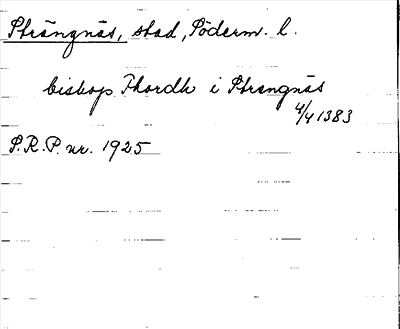 Strängnäs, stad, Söderm. l.
biskop Thordh i Strangnäs
4/4 1383
S.R.P. nr. 1925